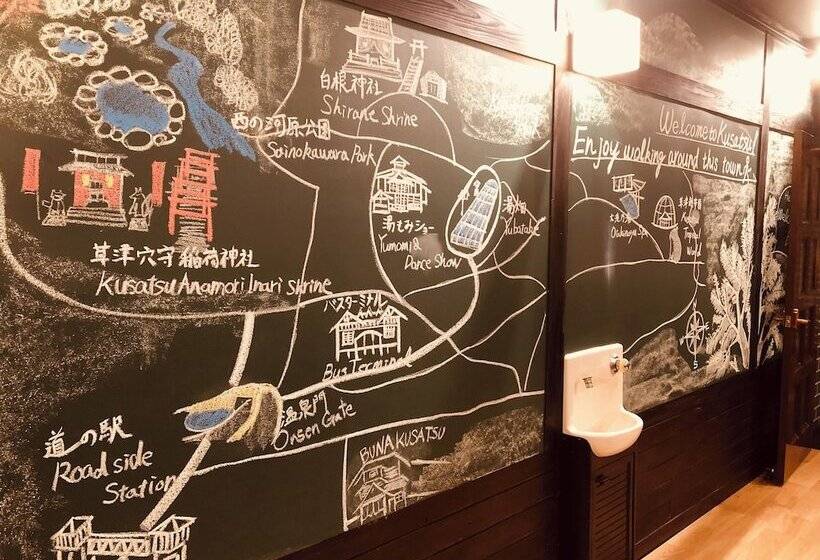 白根神社
Shirane Shrine
西の河原公園
Sainokawara Park
草津穴守稲荷神社
Kusatsu Anamori Inari Shrine
湯もみショー
Yumomi &
Dance Show
湯畑
Yubatake
バスターミナル
Bus Terminal
温泉門
Onsen Gate
道の駅
Road side
Station
BUNA KUSATSU
Welcome to Kusatsu!
Enjoy walking around this town♪
大滝乃湯
Ootakinoyu Spa
草津熱帯圏
Tropical
World
S